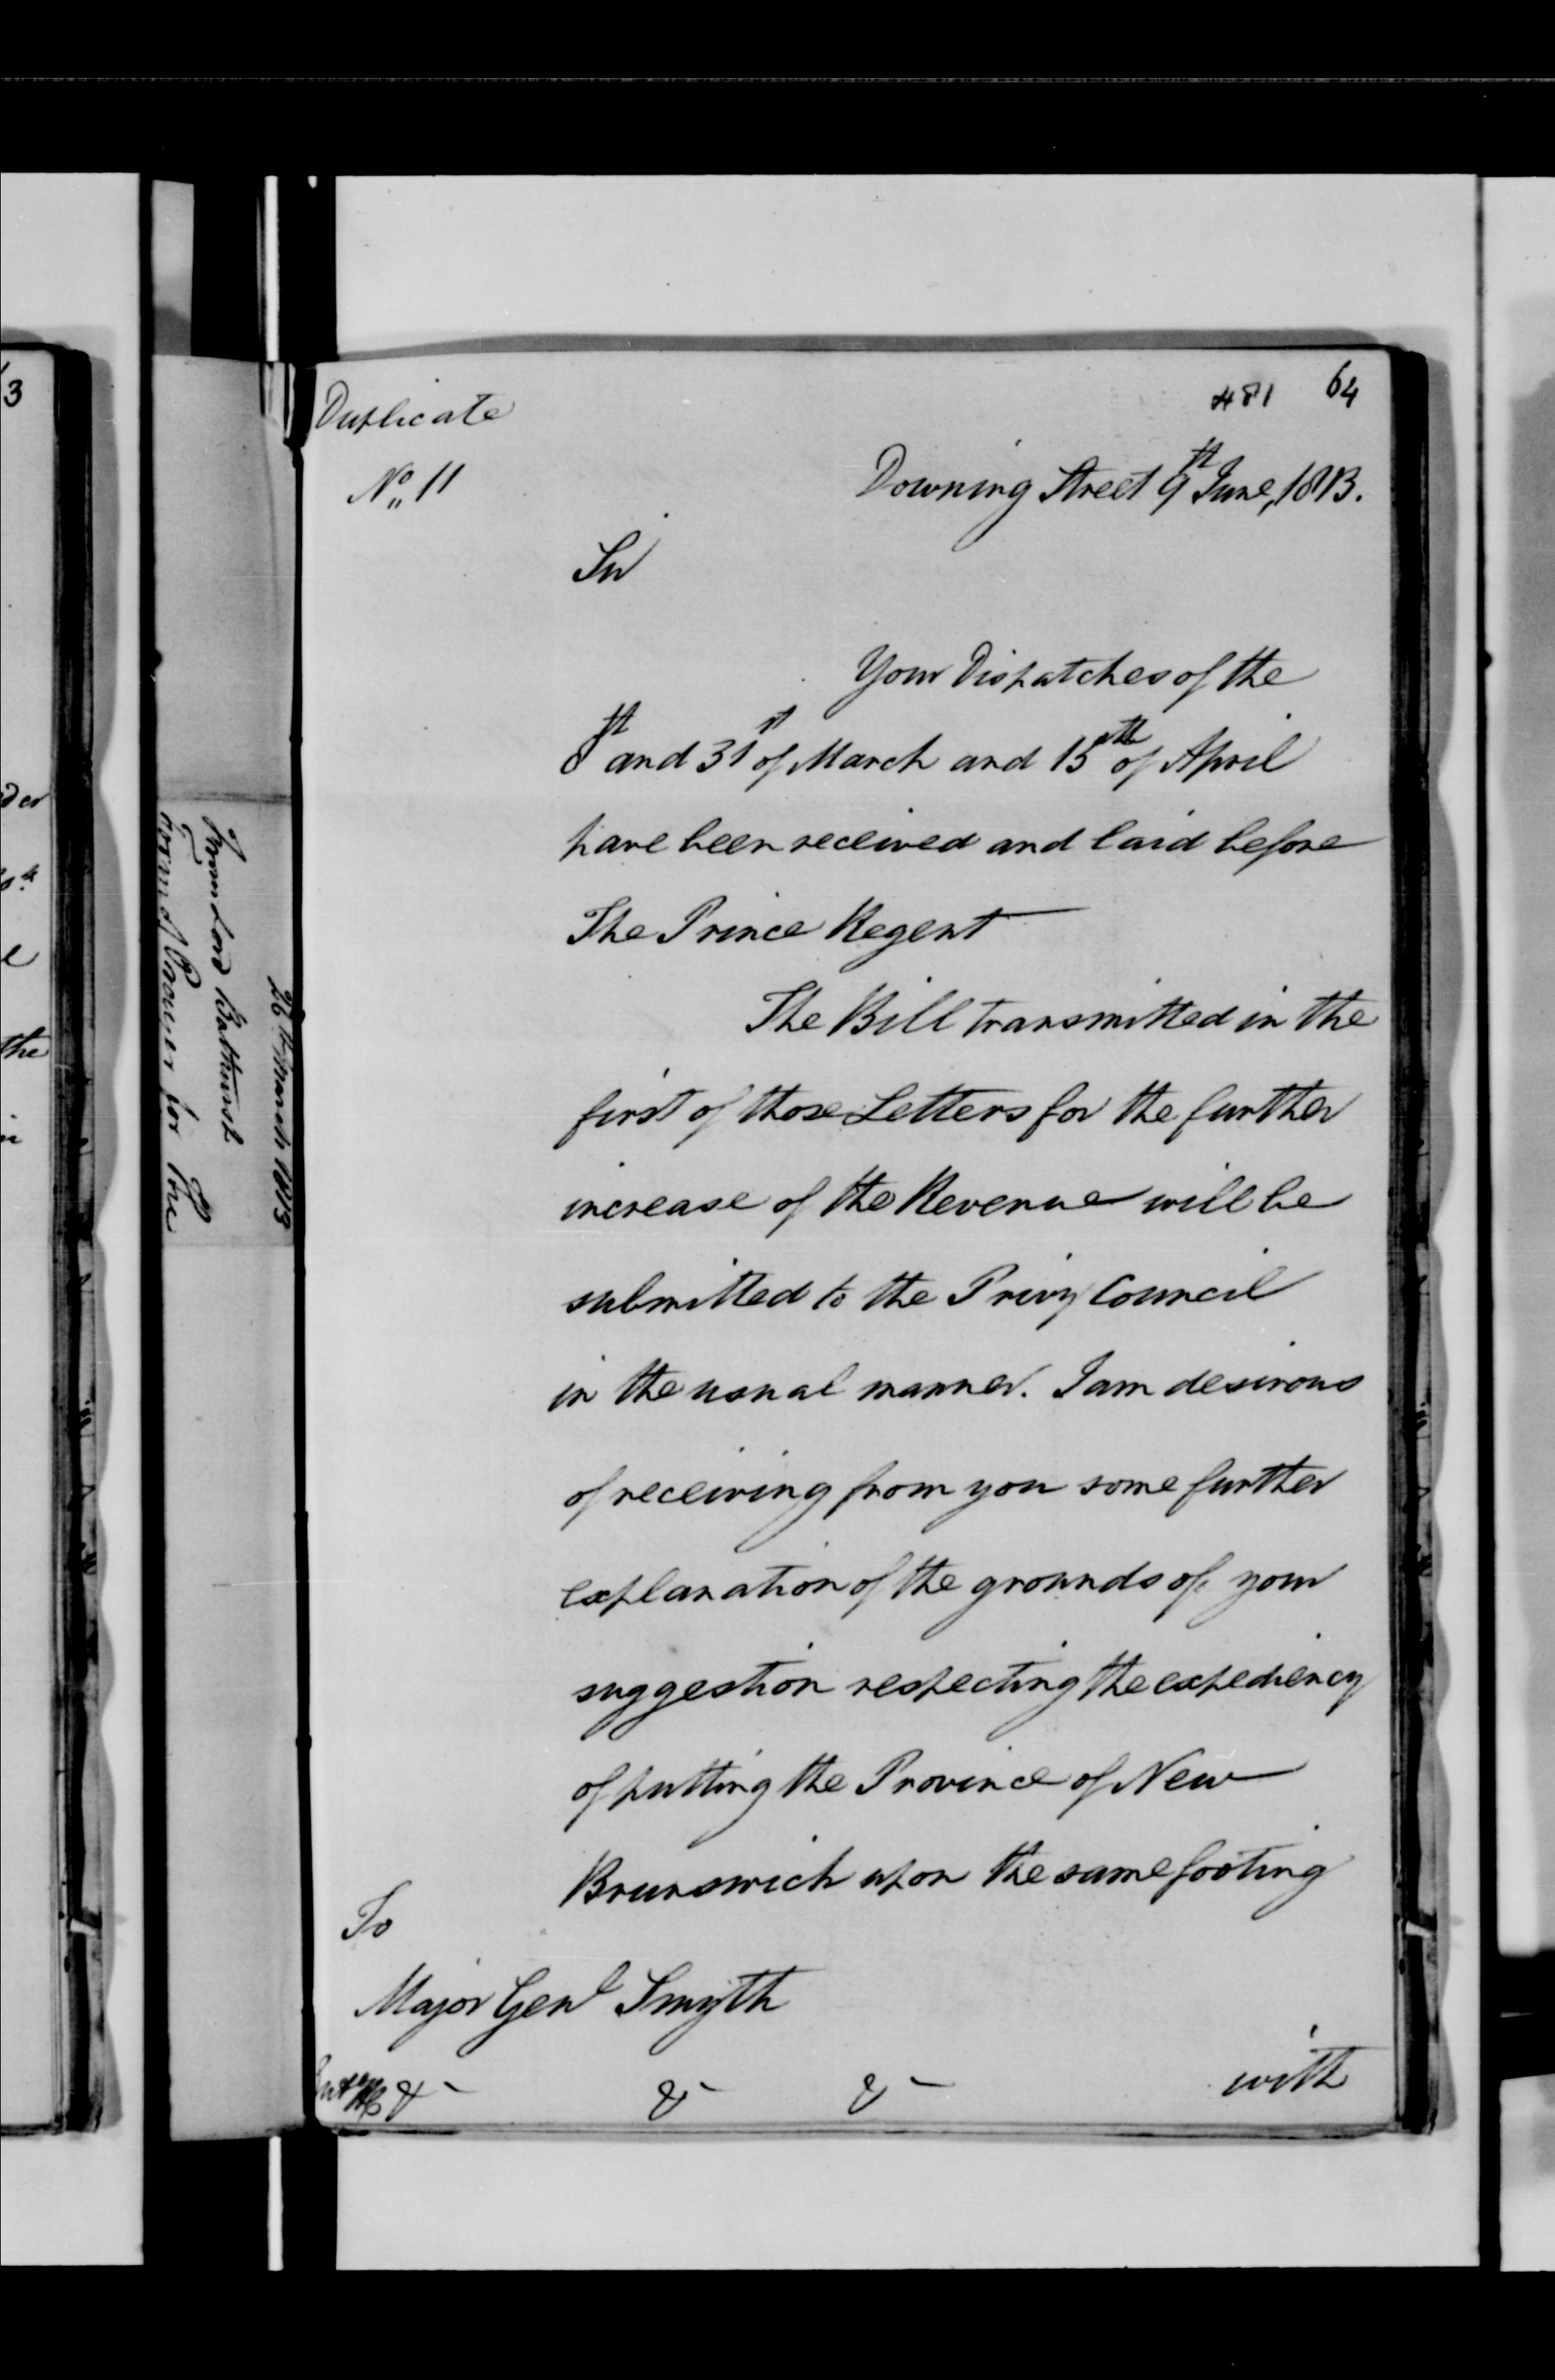 Duplicate
481 64
No 11
Downing Street 9th June, 1813.
Sir
Your Dispatches of the
8th and 31st of March and 15th of April
have been received and laid before
The Prince Regent
The Bill transmitted in the
first of those Letters for the further
increase of the Revenue will be
submitted to the Privy Council
in the usual manner. I am desirous
of receiving from you some further
explanation of the grounds of your
suggestion respecting the expediency
of putting the Province of New
Brunswick upon the same footing
To
Major Genl Smyth
& & &
with
26th March 1813
From Lord Bathurst
form of Prayer for the
3
the